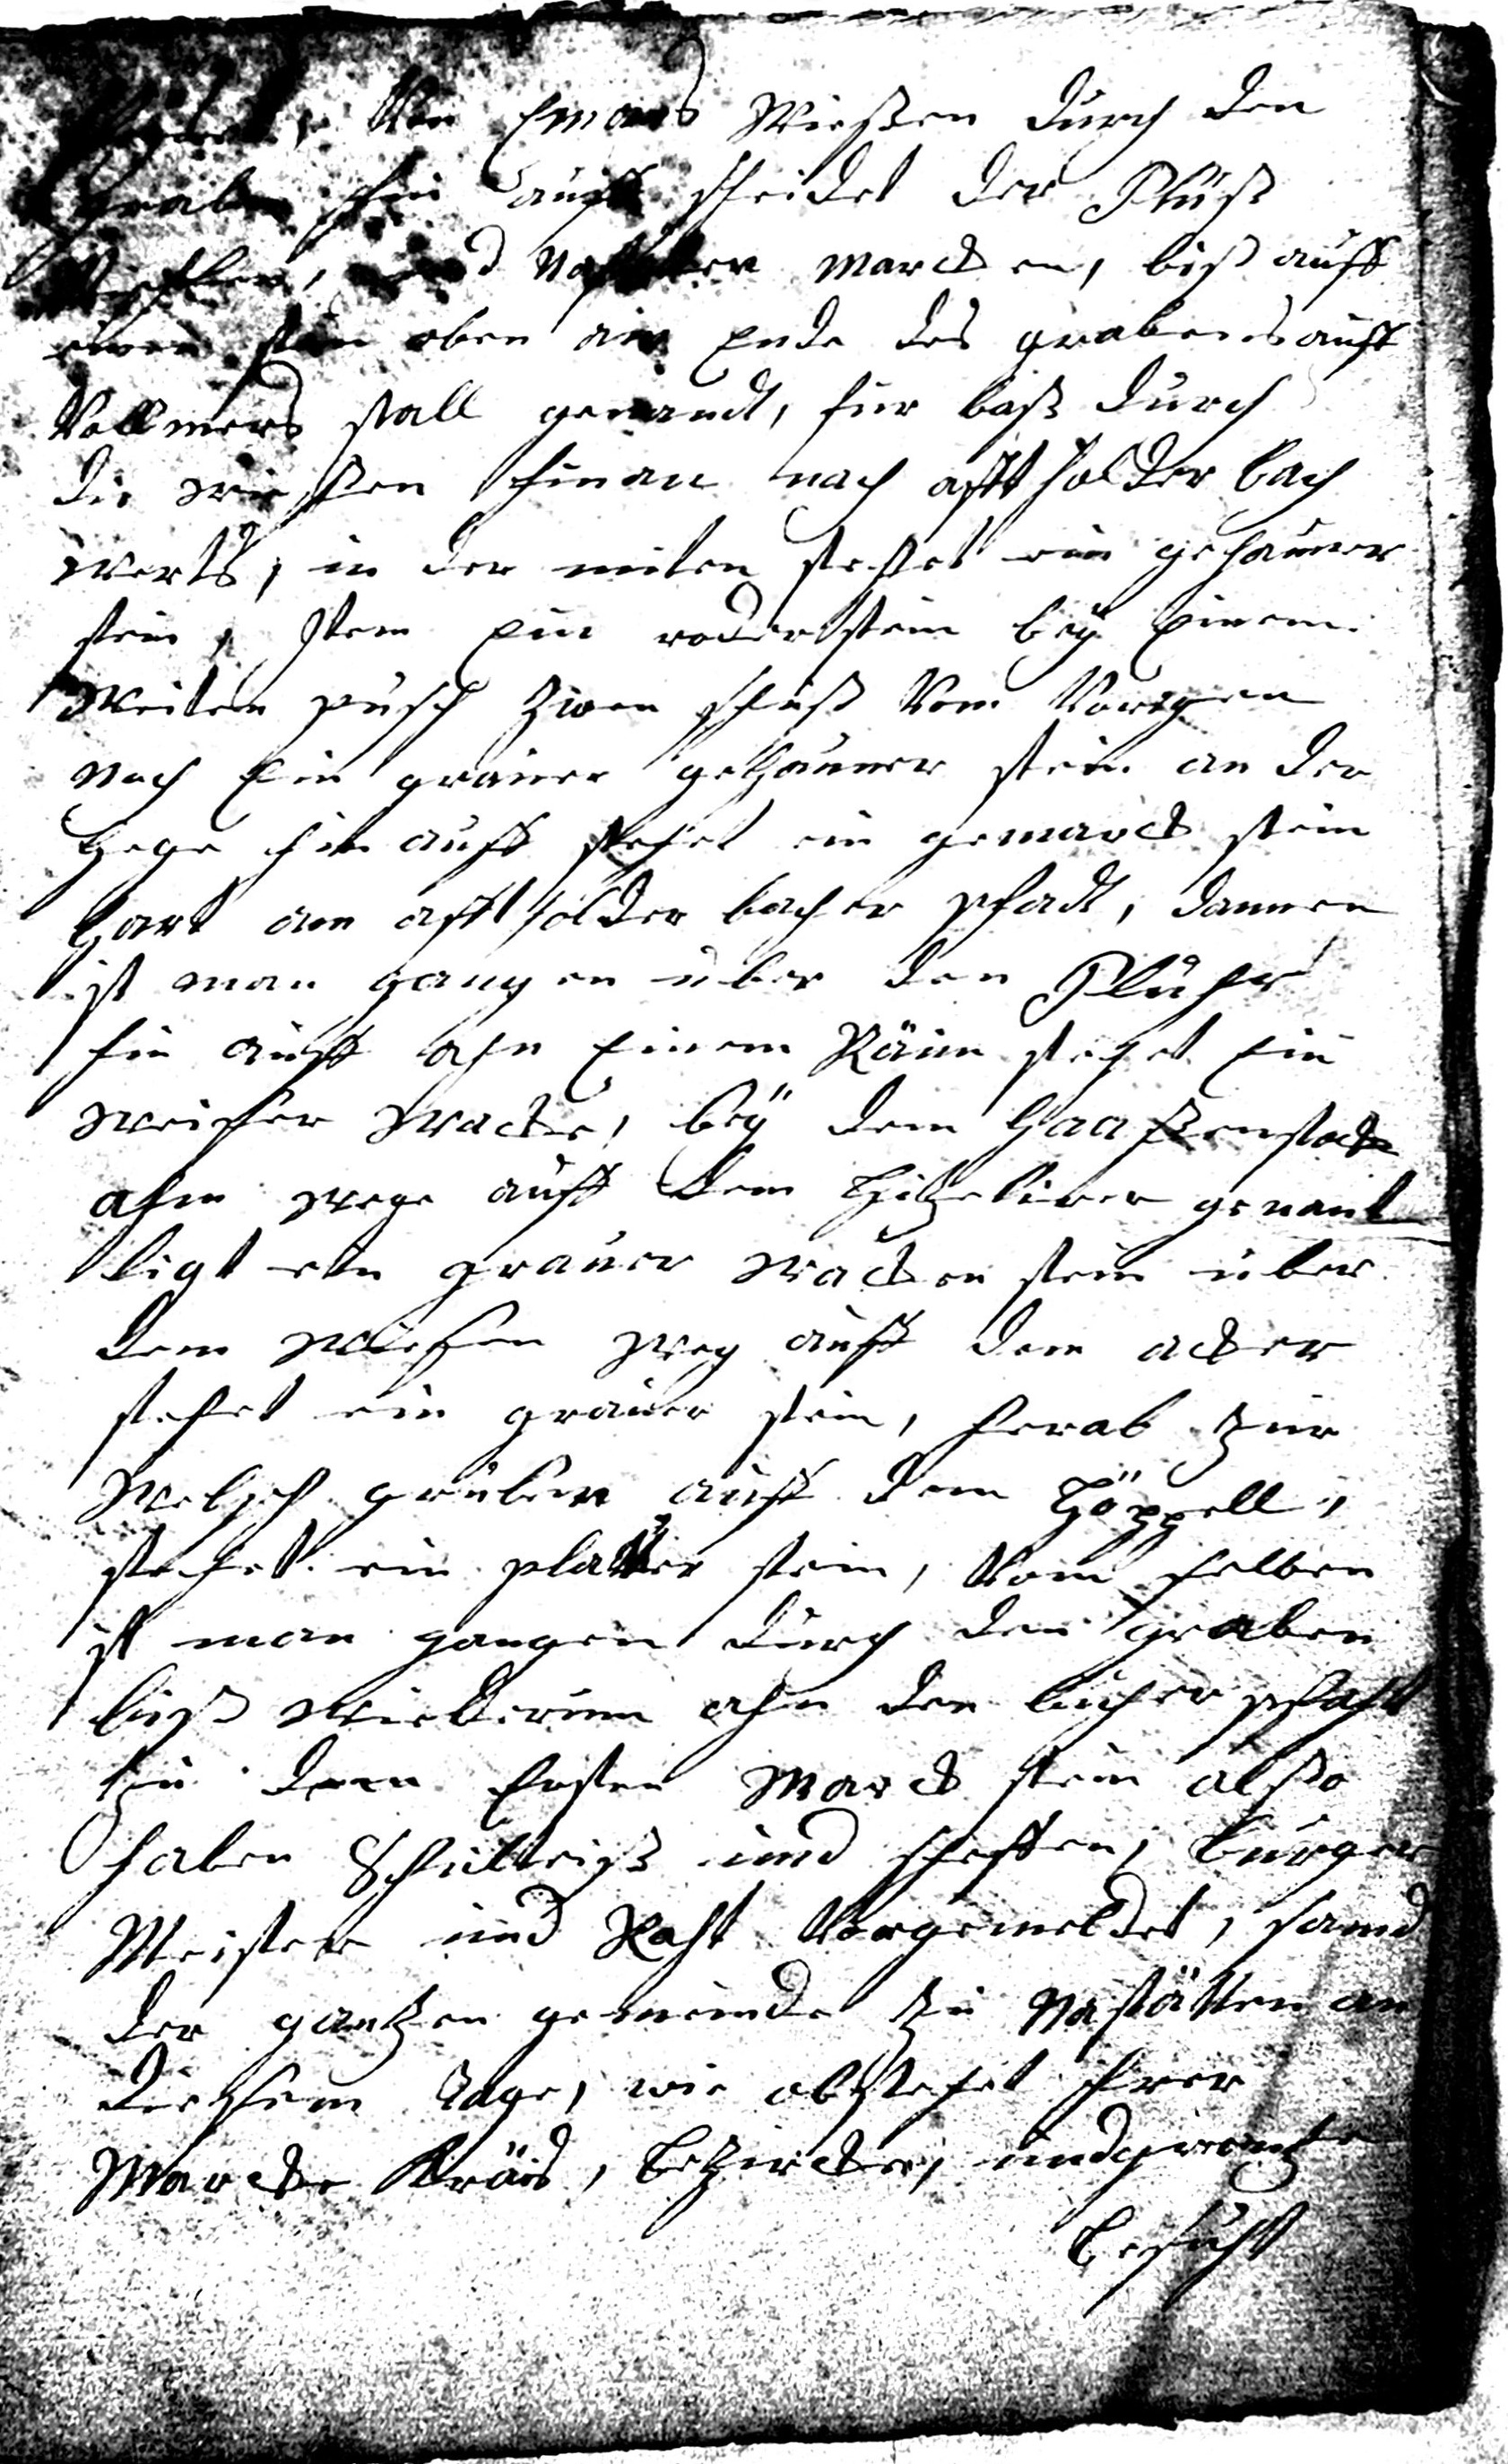 Von Emans Wießen durch den
Graben hin auff scheidet der Fluß
und Nastetter marcken, biß auff
einen stein oben am Ende des grabens auff
Vollmers stall genandt, für baß durch
die wießen hinan nach afftholderbach
werts, in der miten stehet ein gehauner
stein, Item Ein roder stein bey Einem
Weiten pusch zwen schuß Vom Vorigen
noch Ein grauer gehauner stein an der
Hege hin auff stehet ein gemarck stein
hart am affthölder bacher pfadt, dannen
ist man gangen über den Fluhr
hin auff ahn Einem Räun stehet Ein
weiser wacke, bey dem Haaßenstock
ahm wege auff dem genant
ligt ein grauer wacken stein über
dem wießen weg auff dem acker
stehet ein grauer stein, herab zur
Welsch gruben auff dem Höppell,
stehet ein platter stein, Vom selben
ist man gangen durch den graben
biß wiederum ahn den bucher pfaht
zu dem Ersten Marck stein alßo
haben Schulteiß und scheffen, burger
Meister und Raht Vorgemeldet, samd
der gantzen gemeinde zu Nastätten an
dießem tage, wie obstehet ihrer
Marcke Kräis, bezircker, und grentze
besucht